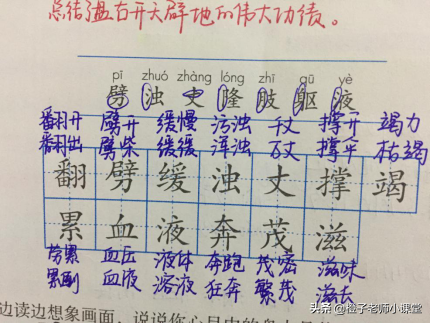 总结了盘古开天辟地的伟大功绩。
pī zhuó zhàng lóng zhī qū yè
劈 浊 丈 隆 肢 躯 液
翻开 劈开 缓慢 污浊 千丈 撑开 竭力
翻出 劈柴 缓缓 浑浊 百丈 枯竭
翻 劈 缓 浊 丈 撑 竭
累 血 液 奔 茂 滋
劳累 血压 液体 奔跑 茂密 滋味
血液 溶液 狂奔 繁茂 滋长
边读边想象画面，说说你心目中的
@橙子老师小课堂